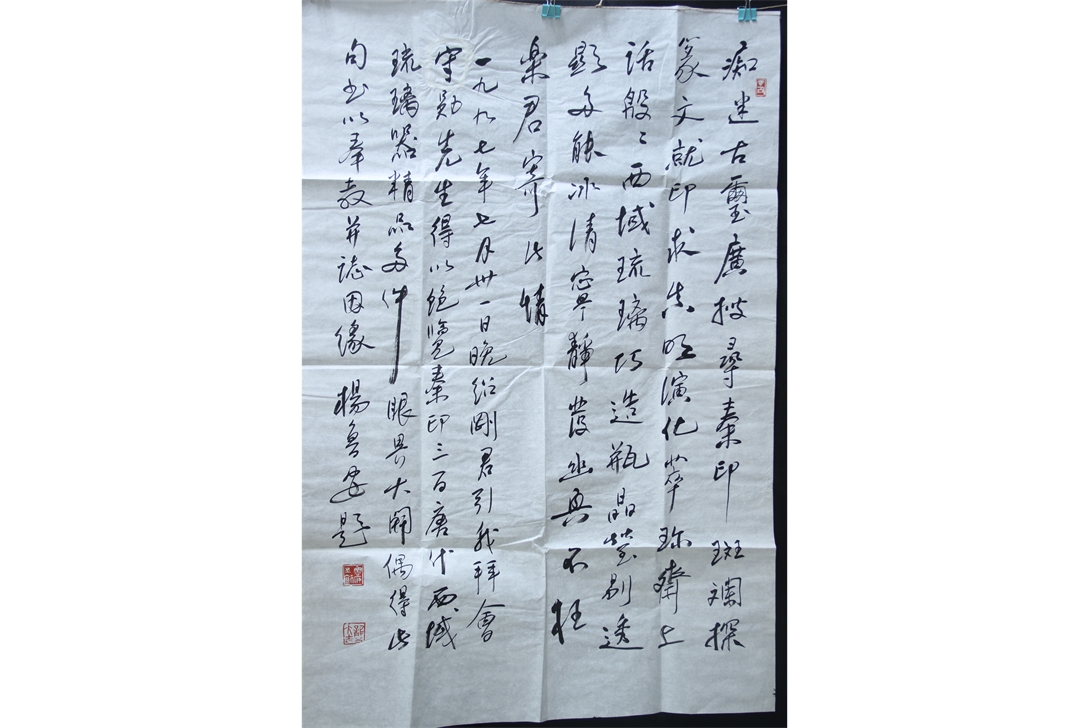 痴迷古璽廣搜尋秦印斑斕探
篆文就印求真明演化萃珍齋上
話般〻西域琉璃巧造瓶晶瑩剔透
顯多能冰清寧靜發幽具不枉
樂君寄此情
一九九七年七月卅一日晚紹剛君引我拜會
守勛先生得以飽覽秦印三百唐代西域
琉璃器精品多件眼界大開偶得此
句書以奉教并誌因緣 楊魯安題